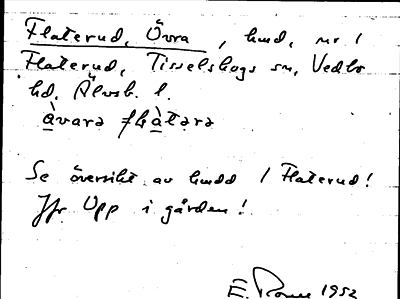 Flaterud, Övra, hmd, nr 1
Flaterud, Tisselskogs sn, Vedbo
hd, Älvsb. l.
àvara flàtara
Se översikt av hmdd / Flaterud!
Jfr Upp i gården!
E. 1952